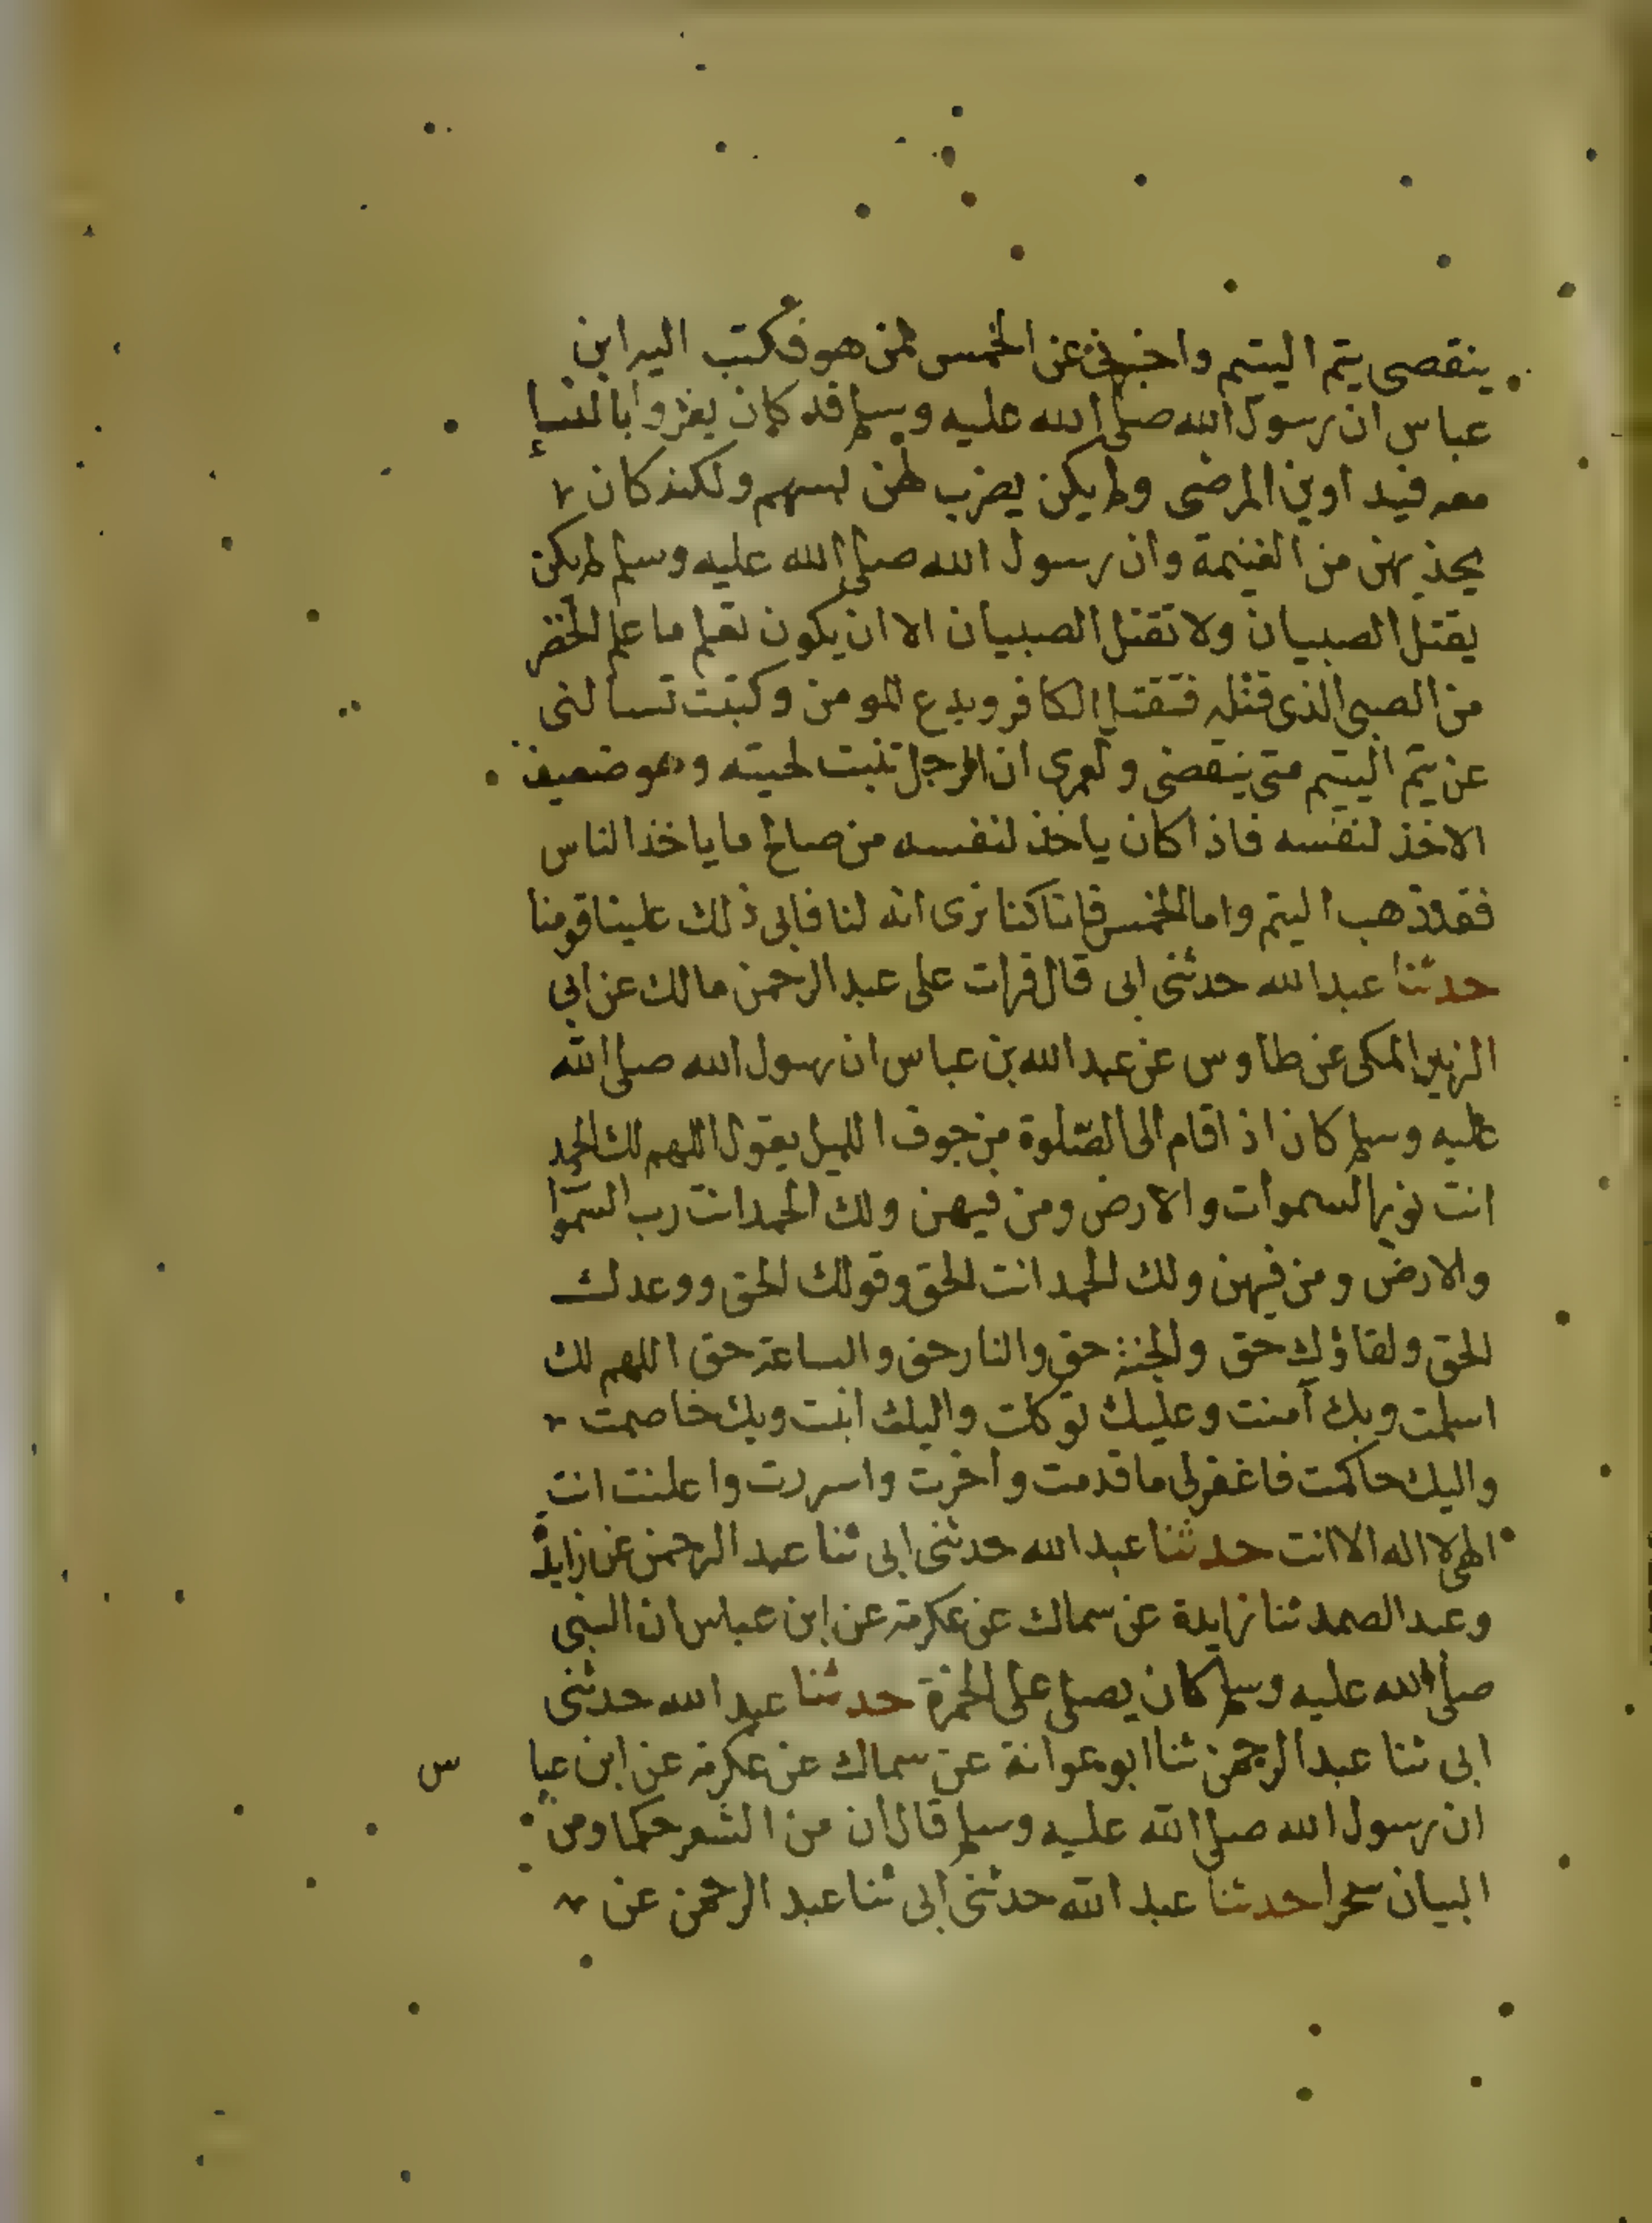 ينقصى يتم اليتيم واخبرنى عن الخمس لمن هو فكتب اليه ابن
عباس ان رسول الله صلى الله عليه وسلم قد كان يغزوا بالنساء
معه فيداوين المرضى ولم يكن يضرب لهن بسهم ولكنه كان
يحذيهن من الغنيمة وان رسول الله صلى الله عليه وسلم لم يكن
يقتل الصبيان ولا تقتل الصبيان الا ان يكون تعلم ما علم الخضر
من الصبى الذى قتله فتقتل الكافر ويدع المومن وكتبت تسالنى
عن يتم اليتيم متى ينقضى ولعمرى ان الرجل تنبت لحيته وهو ضعيف
الاخذ لنفسه فاذا كان ياخذ لنفسه من صالح ما ياخذ الناس
فقد ذهب اليتم واما الخمس فانا كنا نرى انه لنا فابى ذلك علينا قومنا
حدثنا عبد الله حدثنى ابى قال قرات على عبد الرحمن مالك عن ابى
الزبير المكى عن طاوس عن عبد الله بن عباس ان رسول الله صلى الله
عليه وسلم كان اذا قام الى الصلوة من جوف الليل يقول اللهم لك الحمد
انت نور السموات والارض ومن فيهن ولك الحمد انت رب السموا
والارض ومن فيهن ولك الحمد انت الحق وقولك الحق ووعدك
الحق ولقاؤك حق والجنة حق والنار حق والساعة حق اللهم لك
اسلمت وبك آمنت وعليك توكلت واليك انبت وبك خاصمت
واليك حاكمت فاغفر لى ما قدمت واخرت واسررت واعلنت انت
الهى لا اله الا انت حدثنا عبد الله حدثنى ابى ثنا عبد الرحمن عن زايدة
وعبد الصمد ثنا زايدة عن سماك عن عكرمة عن ابن عباس ان النبى
صلى الله عليه وسلم كان يصلى على الخمرة حدثنا عبد الله حدثنى
ابى ثنا عبد الرحمن ثنا ابو عوانة عن سماك عن عكرمة عن ابن عبا س
ان رسول الله صلى الله عليه وسلم قال ان من الشعر حكما ومن
البيان سحرا حدثنا عبد الله حدثنى ابى ثنا عبد الرحمن عن